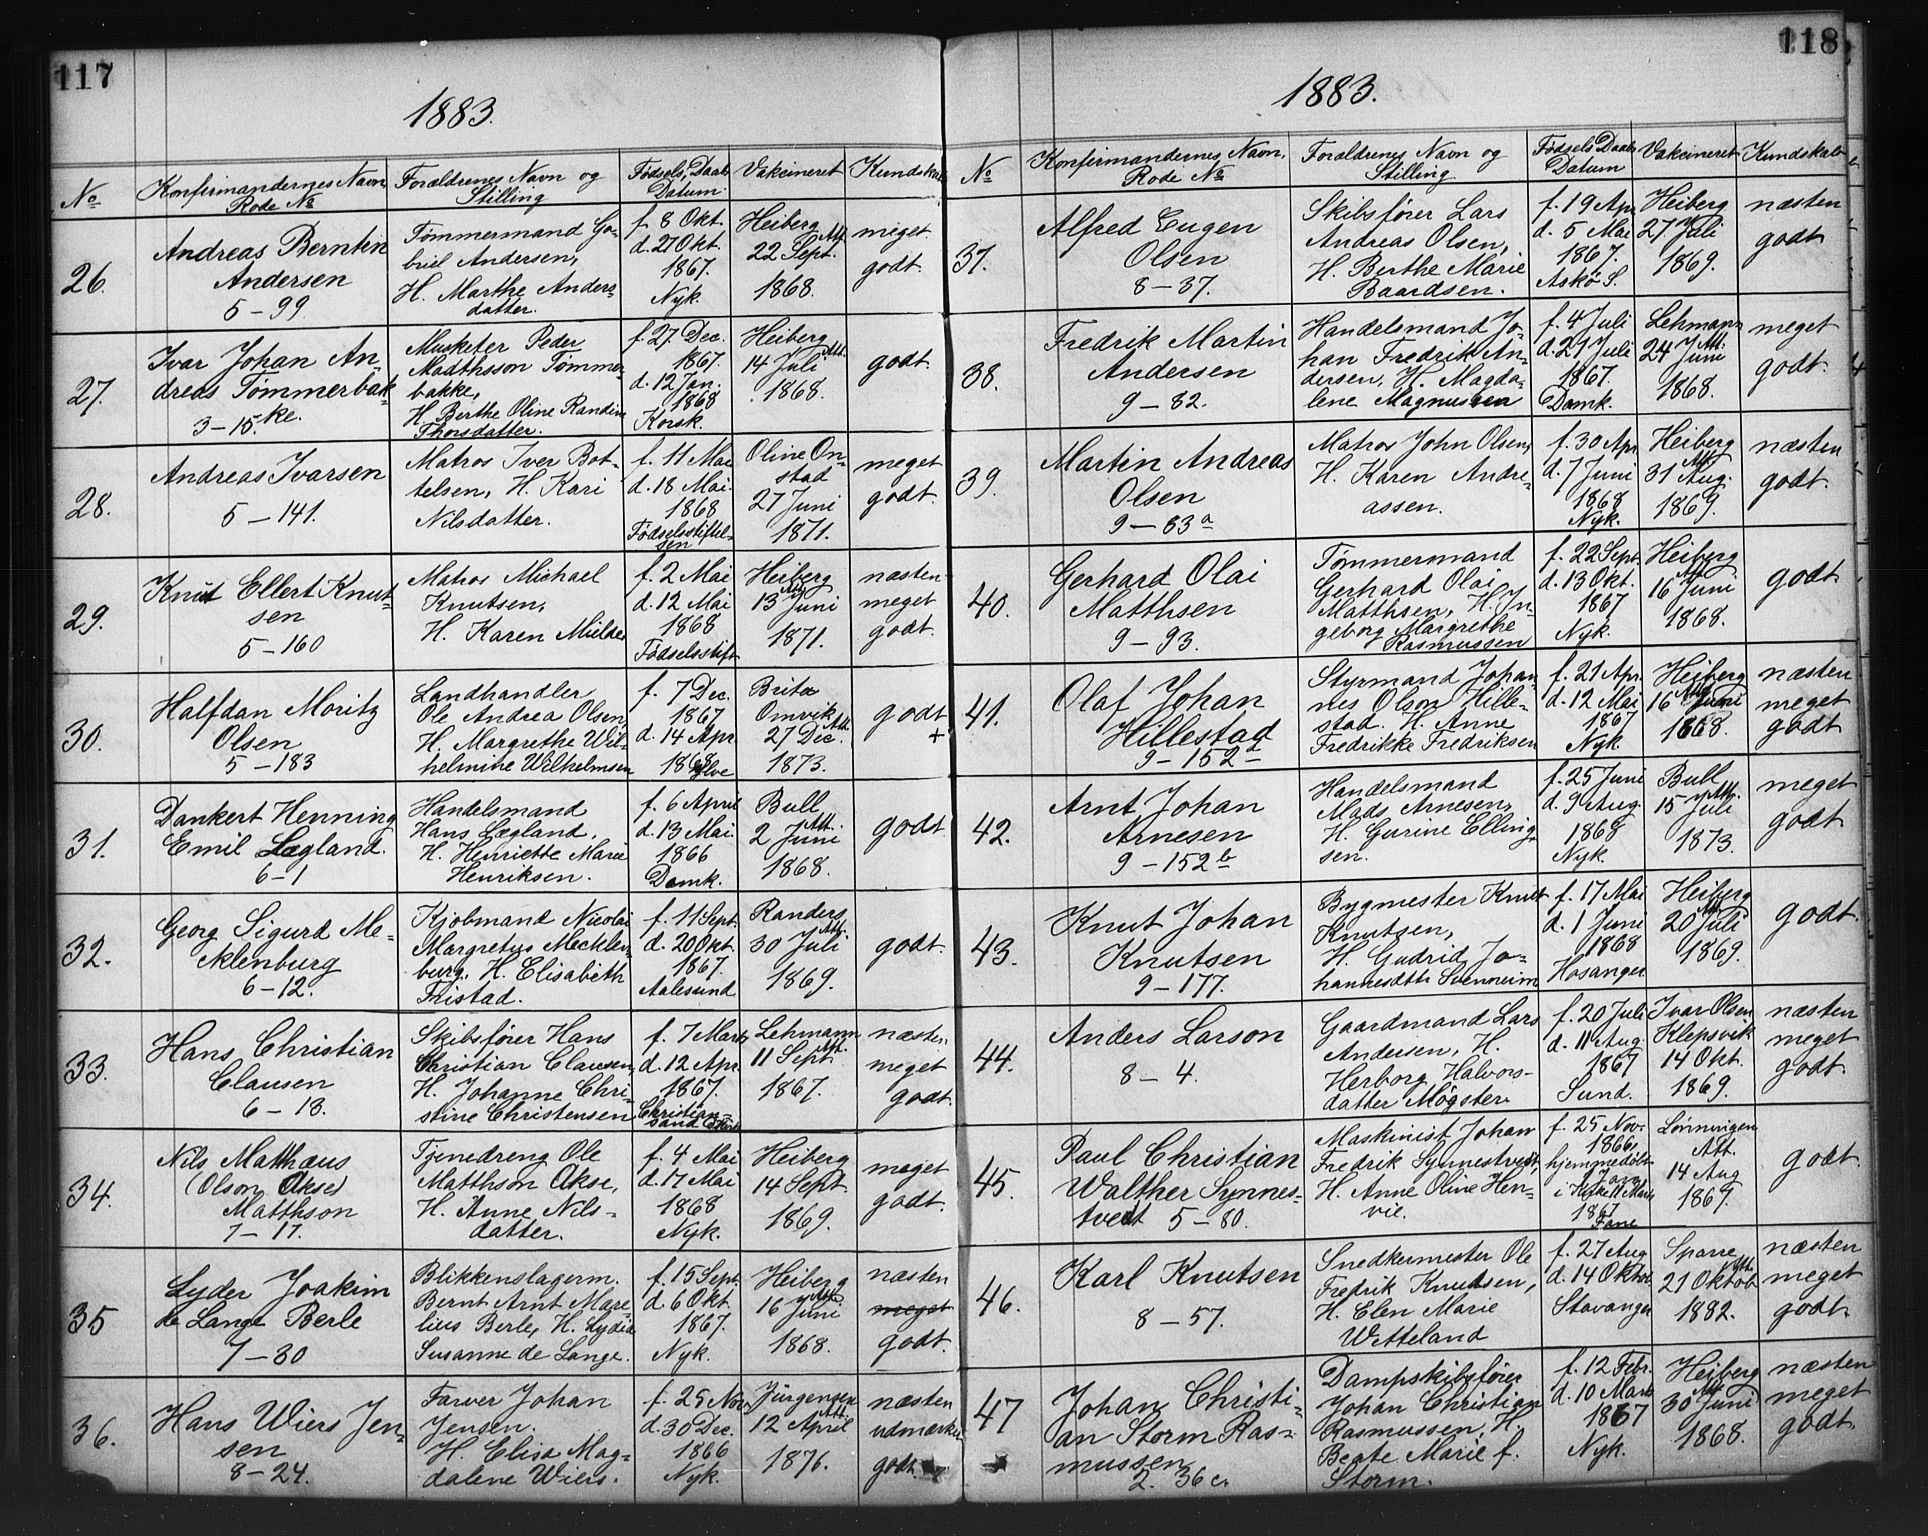 117
1883.
No
Konfirmandernes Navn,
Rode No
Forældrenes Navn og
Stilling
Fødsels, Daabs
Datum
Vakcineret
Kundskab
26.
Andreas Berntin
Andersen
5 – 99
Tømmermand Ga-
briel Andersen,
H. Marthe Anders-
datter.
f. 8 Okt.
d. 27 Okt.
1867.
Nyk.
Heiberg
Att.
22 Sept.
1868.
meget
godt.
27.
Ivar Johan An-
dreas Tømmerbak-
ke.
3 – 15.
Musketer Peder
Madthsson Tømmer-
bakke,
H. Berthe Oline Randine
Thorsdatter.
f. 27. Dec.
1867.
d. 12 Jan.
1868
Korsk.
Heiberg
Att.
14 Juli
1868.
godt.
28.
Andreas Ivarsen
5 – 141.
Matros Iver Bot-
telsen, H. Kari
Nilsdatter.
f. 11 Mai
d. 18 Mai.
1868
Fødselsstiftel-
sen
Oline On-
stad
27 Juni
1871.
meget
godt.
29.
Knut Ellert Knut-
sen
5 – 160
Matros Michael
Knutsen,
H. Karen Mielde
f. 2 Mai
d. 12 Mai
1868
Fødselsstift
Heiberg
Att.
13 Juni
1871.
næsten
meget
godt.
30.
Halfdan Moritz
Olsen
5 – 183
Landhandler
Ole Andrea Olsen
H. Margrethe Wil-
helmine Wilhelmsen
f. 7 Dec.
1867
d. 14 Apr.
1868
Brita
Omvik
Att.
27 Dec.
1873.
godt
+
31.
Dankert Henning
Emil Lægland.
6 – 1
Handelsmand
Hans Lægland,
H. Henriette Marie
Henriksen.
f. 6 April
d. 13 Mai.
1866
Domk.
Bull
Att.
2 Juni
1868.
godt
32.
Georg Sigurd Me-
klenburg
6 – 12.
Kjøbmand Nicolai
Margretus Mecklen-
burg, H. Elisabeth
Fristad.
f. 11 Sept.
d. 20 Okt.
1867.
Aalesund
Randers
Att.
30 Juli
1869.
godt.
33.
Hans Christian
Clausen
6 – 18.
Skibsfører Hans
Christian Clausen,
H. Johanne Chri-
stine Christensen
f. 7 Marts
d. 12 Apr.
1867.
Christian-
sand
Lehmann
Att.
11 Sept.
1867.
næsten
meget
godt.
34.
Nils Matthæus
(Olson Akse)
Matthson
7 – 17.
Tjenedreng Ole
Matthson Akse,
H. Anne Nils-
datter.
f. 4 Mai
d. 17 Mai
1868
Nyk.
Heiberg
14 Sept.
1869.
meget
godt.
35
Lyder Joakim
de Lange Berle
7 – 30
Blikkenslagerm.
Bernt Arnt Mare-
lius Berle, H. Lydia
Susanne de Lange.
f. 15 Sept.
d. 6 Okt.
1867.
Nyk.
Heiberg
Att.
16 Juni
1868.
næsten
meget
godt.
36.
Hans Wiers Jen-
sen
8 – 24.
Farver Johan
Jensen.
H. Elisa Mag-
dalene Wiers.
f. 25 Nov.
d. 30 Dec.
1866
Nyk.
Jürgensen
Att.
12 April
1876.
næsten
udmærket
godt.
118
1883.
No
Konfirmandernes Navn,
Rode No
Forældrenes Navn og
Stilling
Fødsels Daabs
Datum
Vakcineret
Kundskab
37.
Alfred Eugen
Olsen
8 – 37.
Skibsfører Lars
Andreas Olsen,
H. Berthe Marie
Baardsen.
f. 19 Apr
d. 5 Mai
1867.
Askø S.
Heiberg
27 Juli
1869.
næsten
godt
38.
Fredrik Martin
Andersen
9 – 82.
Handelsmand Jo-
han Fredrik An-
dersen, H. Magda-
lene Magnussen
f. 4 Juli
d. 21 Juli
1867.
Domk.
Lehmann
Att.
24 Juni
1868.
meget
godt.
39.
Martin Andreas
Olsen
9 – 63 a
Matros John Olsen,
H. Karen Andre-
assen.
f. 30 Apr.
d. 7 Juni
1868
Nyk.
Heiberg
Att.
31 Aug.
1869.
næsten
godt.
40.
Gerhard Olai
Matthsen
9 – 93.
Tømmermand
Gerhard Olai
Matthsen, H. In-
geborg Margrethe
Rasmussen
f. 22 Sept.
d. 13 Okt.
1867
Nyk.
Heiberg
Att.
16 Juni
1868.
godt
41.
Olaf Johan
Hillestad
9 – 152
Styrmand Johan-
nes Olson Hille-
stad. H. Anne
Fredrikke Fredriksen
f. 21 Apr.
d. 12 Mai
1867
Nyk.
Heiberg
Att.
16 Juni
1868.
næsten
meget
godt
42.
Arnt Johan
Arnesen
9 – 152 b
Handelsmand
Mads Arnesen,
H. Gurine Elling-
sen.
f. 25 Juni
d. 9 Aug.
1868
Nyk.
Bull
Att.
15 Juli
1873.
meget
godt
43.
Knut Johan
Knutsen
9 – 177.
Bygmester Knut
Knutsen,
H. Gudrid Jo-
hannesdtr Svenneim
f. 17 Mai
d. 1 Juni
1868
Hosanger
Heiberg
Att.
20 Juli
1869.
godt.
44.
Anders Larson
8 – 4.
Gaardmand Lars
Andersen, H.
Herborg Halvors-
datter Møgster
f. 20 Juli
d. 11 Aug.
1867
Sund.
Ivar Olsen
Klepsvik
14 Okt.
1869.
næsten
meget
godt.
45.
Paul Christian
Walther Synnes-
tvedt 5 – 80.
Maskinist Johan
Fredrik Synnestvedt,
H. Anne Oline Hen-
vie.
f. 25 Nov.
1866,
hjemmedøbt
Jan
i Kirke 11 Marts
1867
Fane
Lønningen
Att.
14 Aug
1867.
godt.
46.
Karl Knutsen
8 – 57.
Snedkermester Ole
Fredrik Knudsen,
H. Elen Marie
Wetteland
f. 27 Aug
d. 14 Oktob
Stavanger
Sparre
Att.
21 Oktob
1882.
næsten
meget
godt.
47
Johan Christi-
an Storm Ras-
mussen
2. 36 c.
Dampskibsfører
Johan Christian
Rasmussen, H.
Beate Marie f.
Storm.
f. 12 Febr.
d. 10 Marts
1867
Nyk.
Heiberg
Att.
30 Juni
1868.
næsten
meget
godt.